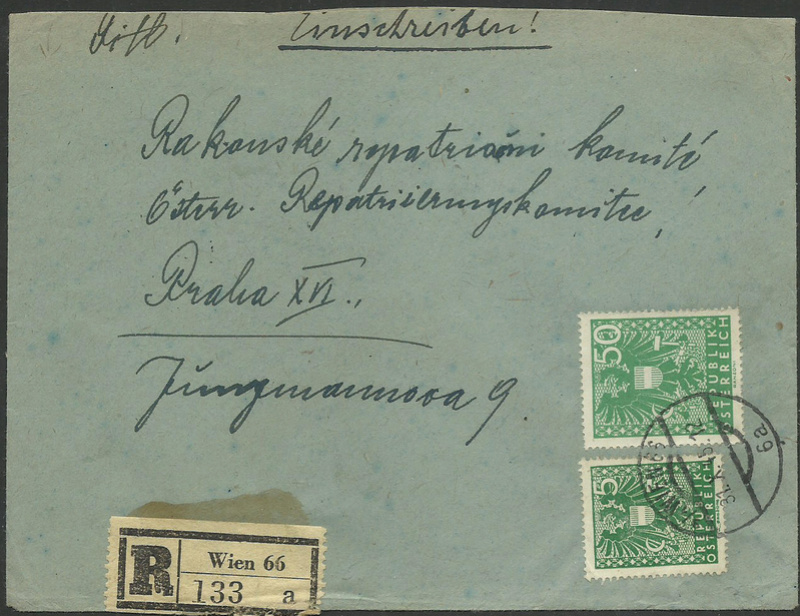 Einschreiben!
Rakouské repatriační komité
Österr. Repatriierungskomitee,
Praha XVI.,
Jungmannova 9
50
REPUBLIK
ÖSTERREICH
5
REPUBLIK
ÖSTERREICH
WIEN 66
31.X.45-12
6a
R
Wien 66
133 a